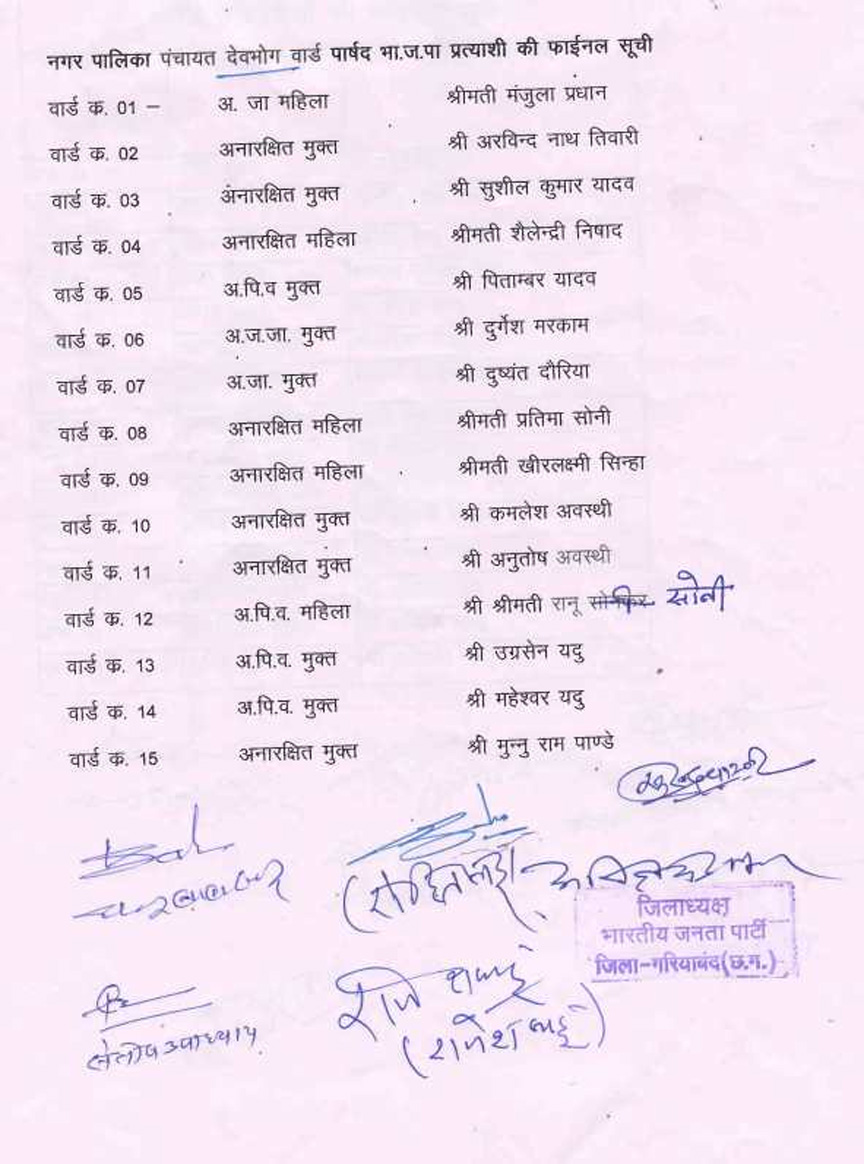 नगर पालिका पंचायत देवभोग वार्ड पार्षद भा.ज.पा प्रत्याशी की फाईनल सूची
वार्ड क. 01 – अ. जा महिला श्रीमती मंजुला प्रधान
वार्ड क. 02 अनारक्षित मुक्त श्री अरविन्द नाथ तिवारी
वार्ड क. 03 अनारक्षित मुक्त श्री सुशील कुमार यादव
वार्ड क. 04 अनारक्षित महिला श्रीमती शैलेन्द्री निषाद
वार्ड क. 05 अ.पि.व मुक्त श्री पिताम्बर यादव
वार्ड क. 06 अ.ज.जा. मुक्त श्री दुर्गेश मरकाम
वार्ड क. 07 अ.जा. मुक्त श्री दुष्यंत दौरिया
वार्ड क. 08 अनारक्षित महिला श्रीमती प्रतिमा सोनी
वार्ड क. 09 अनारक्षित महिला श्रीमती खीरलक्ष्मी सिन्हा
वार्ड क. 10 अनारक्षित मुक्त श्री कमलेश अवस्थी
वार्ड क. 11 अनारक्षित मुक्त श्री अनुतोष अवस्थी
वार्ड क. 12 अ.पि.व. महिला श्री श्रीमती रानू सोनी
वार्ड क. 13 अ.पि.व. मुक्त श्री उग्रसेन यदु
वार्ड क. 14 अ.पि.व. मुक्त श्री महेश्वर यदु
वार्ड क. 15 अनारक्षित मुक्त श्री मुन्नु राम पाण्डे
जिलाध्यक्ष
भारतीय जनता पार्टी
जिला-गरियाबंद(छ.ग.)
संतोष उपाध्याय